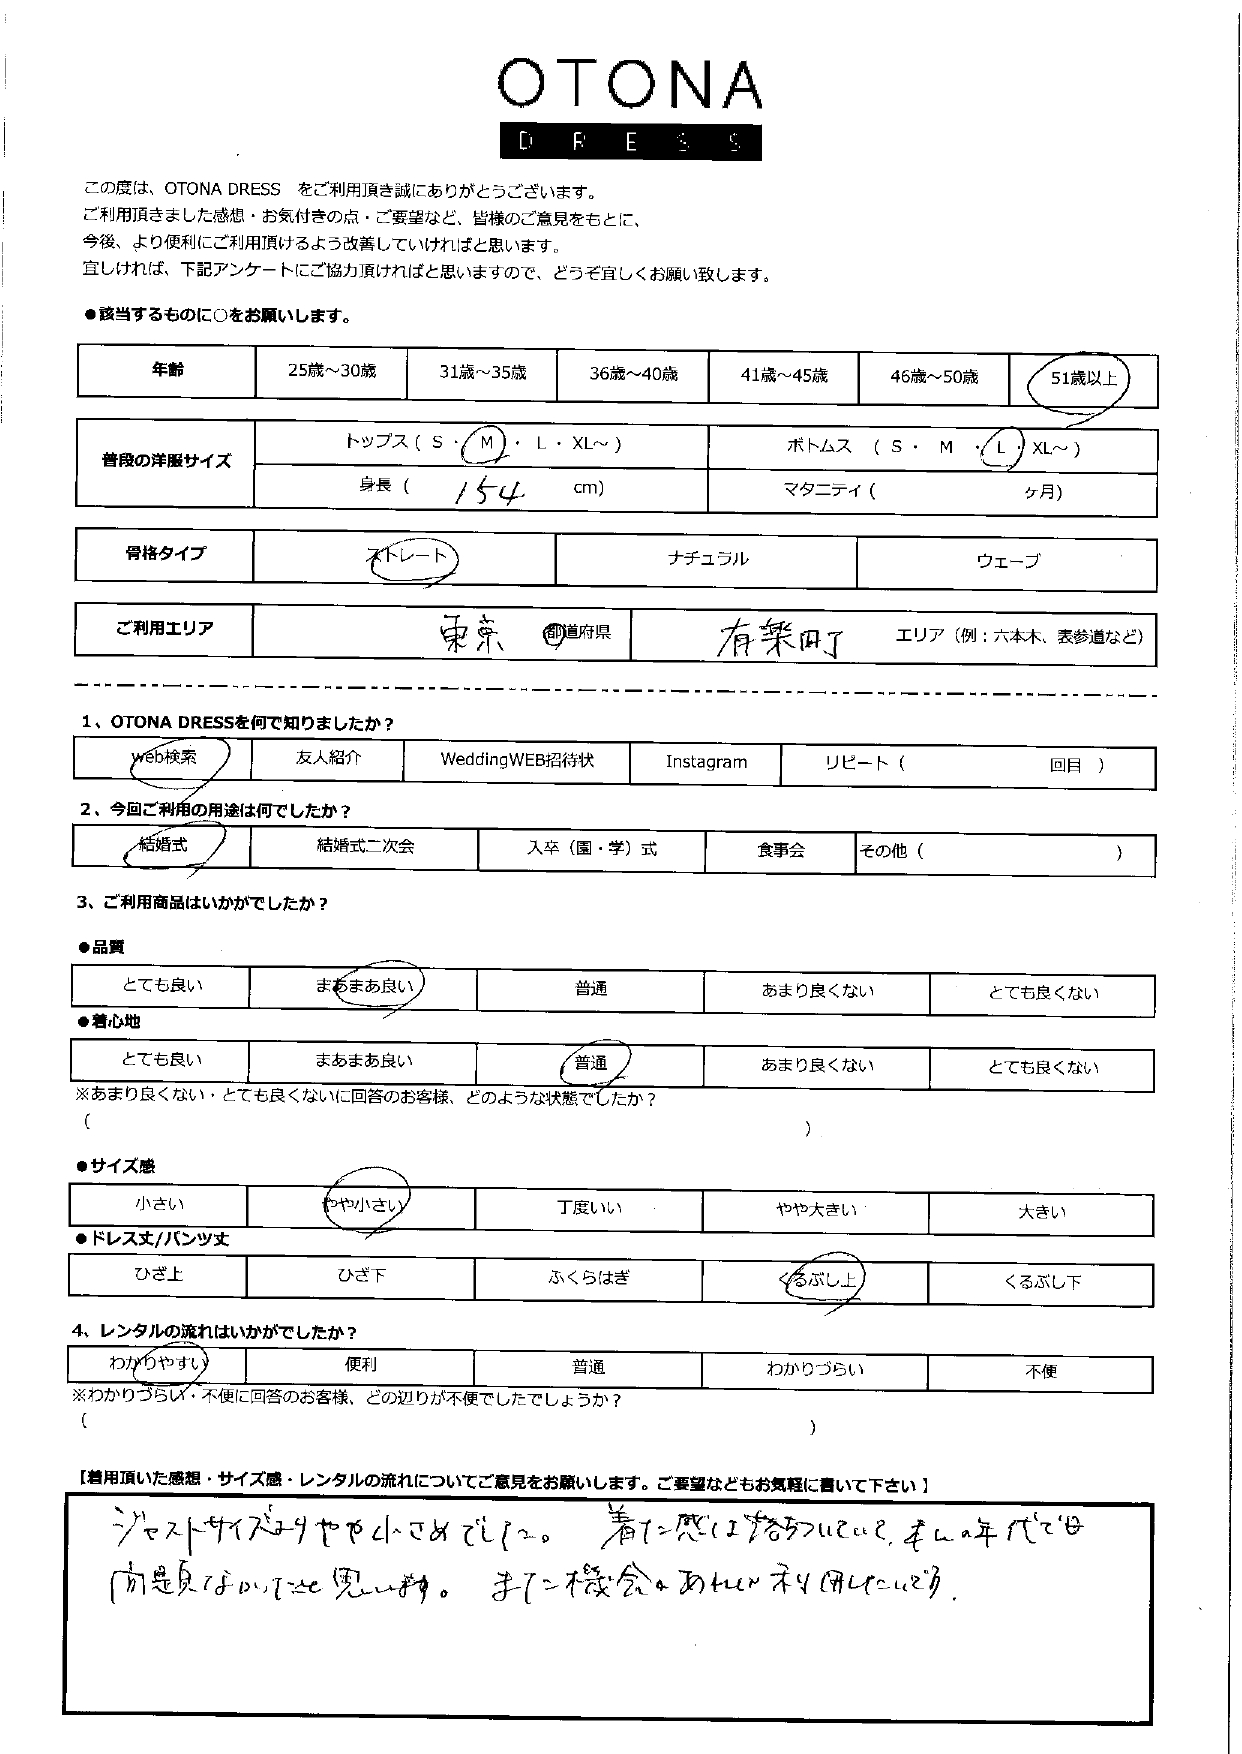 OTONA
DRESS
この度は、OTONA DRESS をご利用頂き誠にありがとうございます。
ご利用頂きました感想・お気付きの点・ご要望など、皆様のご意見をもとに、
今後、より便利にご利用頂けるよう改善していければと思います。
宜しければ、下記アンケートにご協力頂ければと思いますので、どうぞ宜しくお願い致します。
●該当するものに○をお願いします。
年齢 25歳～30歳 31歳～35歳 36歳～40歳 41歳～45歳 46歳～50歳 51歳以上
普段の洋服サイズ トップス ( S ・ M ・ L ・ XL～ ) ボトムス ( S ・ M ・ L ・ XL～ )
身長 ( 154 cm) マタニティ ( ヶ月)
骨格タイプ ストレート ナチュラル ウェーブ
ご利用エリア 東京 都道府県 有楽町 エリア（例：六本木、表参道など）
1、OTONA DRESSを何で知りましたか？
web検索 友人紹介 WeddingWEB招待状 Instagram リピート ( 回目 )
2、今回ご利用の用途は何でしたか？
結婚式 結婚式二次会 入卒（園・学）式 食事会 その他 ( )
3、ご利用商品はいかがでしたか？
●品質
とても良い まあまあ良い 普通 あまり良くない とても良くない
●着心地
とても良い まあまあ良い 普通 あまり良くない とても良くない
※あまり良くない・とても良くないに回答のお客様、どのような状態でしたか？
( )
●サイズ感
小さい やや小さい 丁度いい やや大きい 大きい
●ドレス丈/パンツ丈
ひざ上 ひざ下 ふくらはぎ くるぶし上 くるぶし下
4、レンタルの流れはいかがでしたか？
わかりやすい 便利 普通 わかりづらい 不便
※わかりづらい・不便に回答のお客様、どの辺りが不便でしたでしょうか？
( )
【着用頂いた感想・サイズ感・レンタルの流れについてご意見をお願いします。ご要望などもお気軽に書いて下さい】
ジャストサイズよりやや小さめでした。 着た感じは落ちついていて、私の年代でも
問題なかったと思います。 また機会があれば利用したいです.